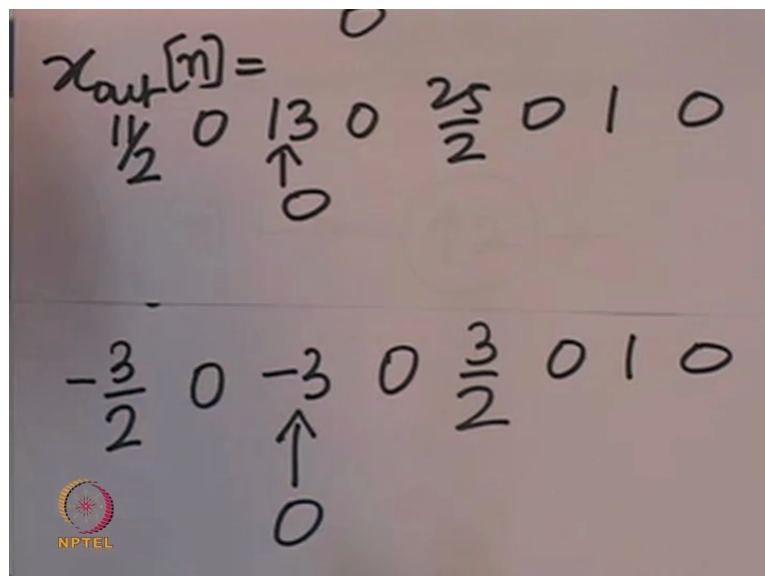 0
x_out[n] =
11/2 0 13 0 25/2 0 1 0
↑
0
-3/2 0 -3 0 3/2 0 1 0
↑
0
NPTEL